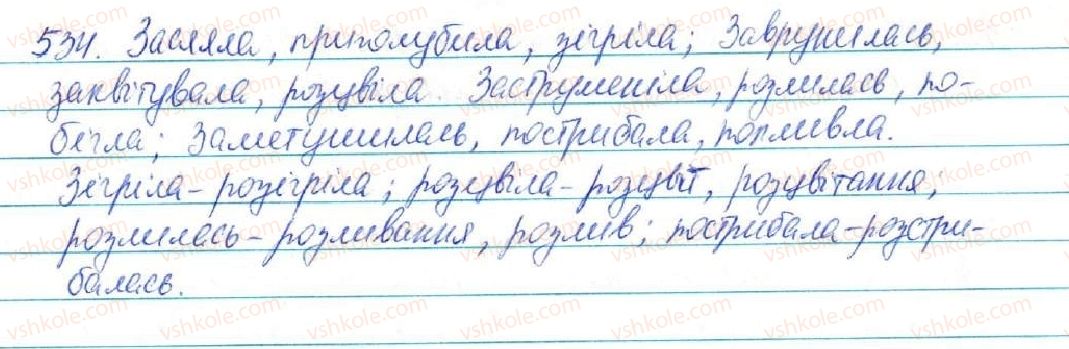 534. Засяяла, приголубила, зігріла; Заврунилась,
заквітувала, розцвіла. Заструменіла, розлилась, по-
бігла; Заметушилась, пострибала, попливла.
Зігріла – розігріла; розцвіла – розцвіт, розцвітання;
розлилась – розливання, розлив; пострибала – розстри-
балась.